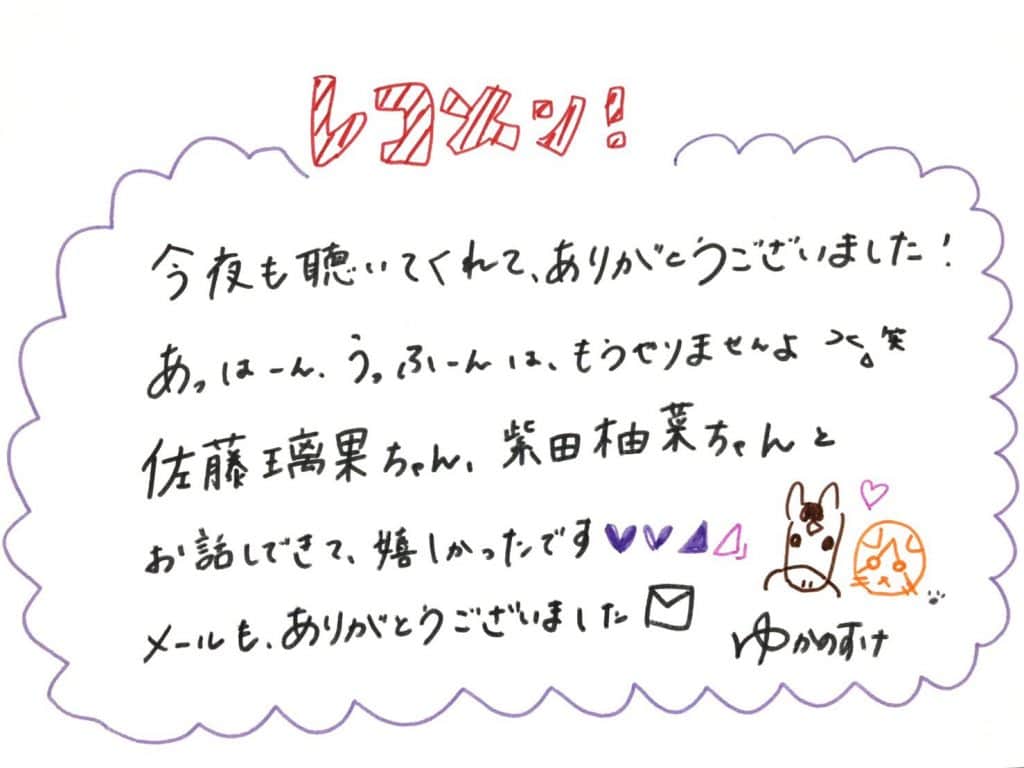 レコメン!
今夜も聴いてくれて、ありがとうございました!
あっはーん、うっふーんは、もうやりませんよ 笑
佐藤璃果ちゃん、柴田柚菜ちゃんと
お話しできて、嬉しかったです
メールも、ありがとうございました
ゆかのすけ